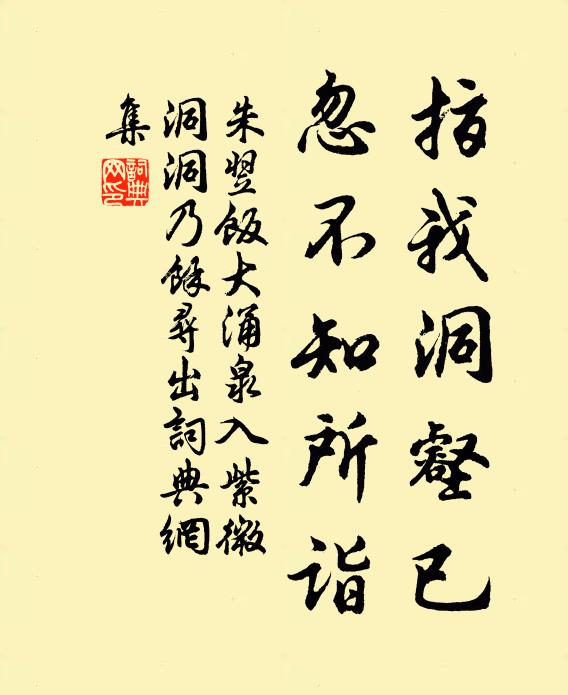 指我洞壑已
忽不知所诣
朱翌飯大涌泉入紫微
洞洞乃餘尋出詞典網
集
詞典
网印